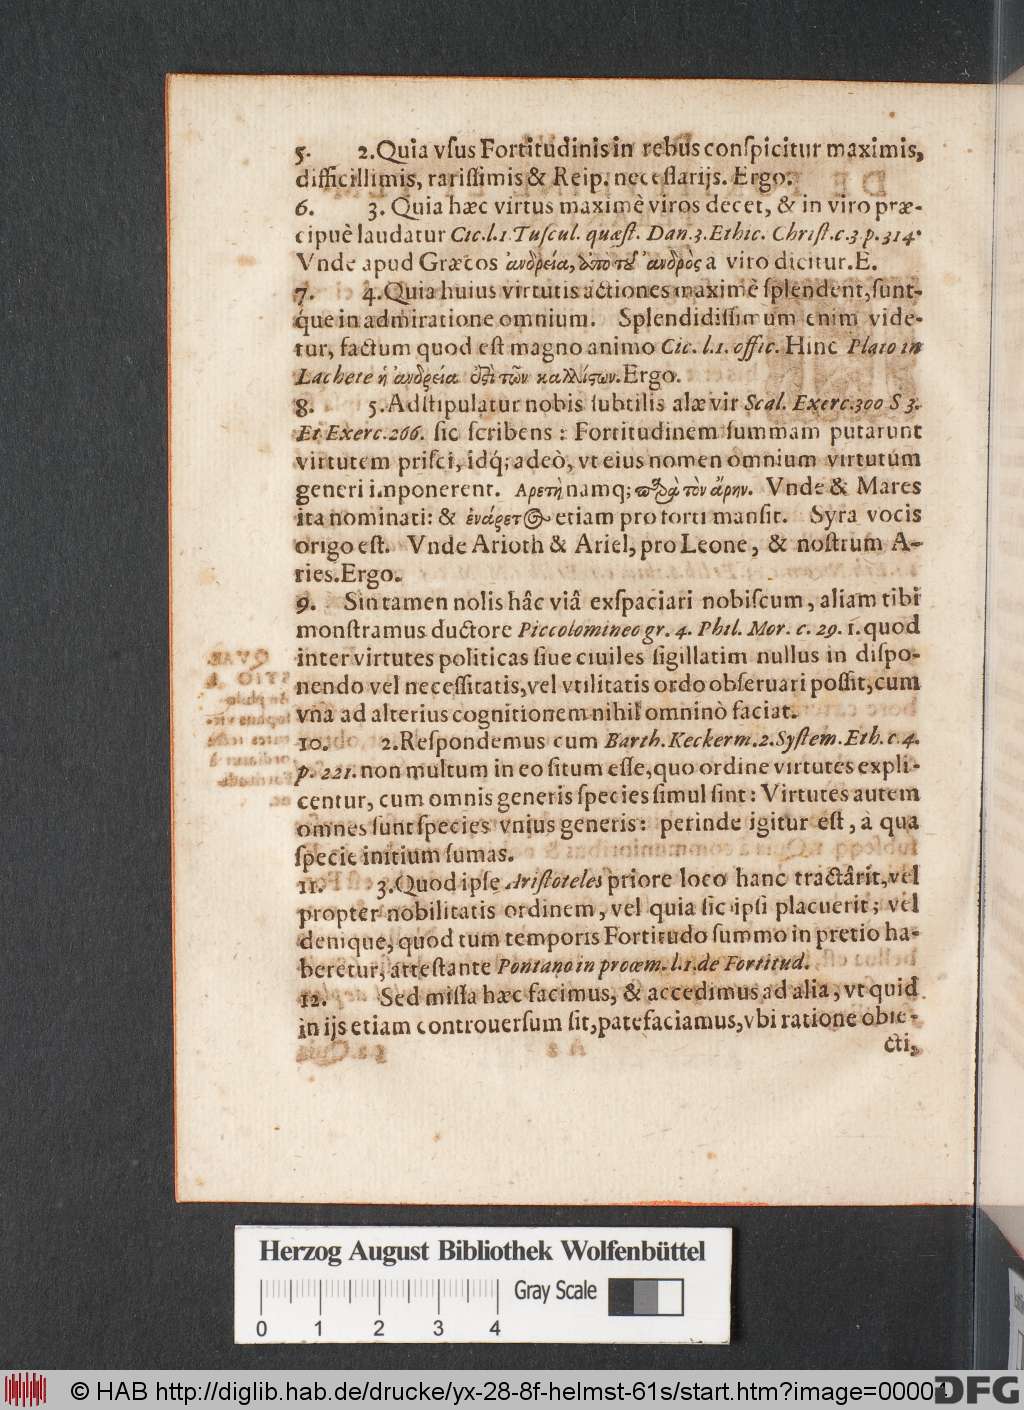 5. 2. Quia vſus Fortitudinis in rebus conſpicitur maximis,
difficillimis, rariſſimis & Reip. neceſſarijs. Ergo.
6. 3. Quia hæc virtus maximè viros decet, & in viro præ-
cipuè laudatur Cic. l. 1. Tuſcul. quæſt. Dan. 3. Ethic. Chriſt. c. 3 p. 314.
Vnde apud Græcos ἀνδρεία, ἀπὸ τοῦ ἀνδρὸς a viro dicitur. E.
7. 4. Quia huius virtutis actiones maximè ſplendent, ſunt-
que in admiratione omnium. Splendidiſſimum enim vide-
tur, factum quod eſt magno animo Cic. l. 1. offic. Hinc Plato in
Lachete ἡ ἀνδρεία ἐςὶ τῶν καλλίςων. Ergo.
8. 5. Adſtipulatur nobis ſubtilis alæ vir Scal. Exerc. 300 S 3.
Et Exerc. 266. ſic ſcribens: Fortitudinem ſummam putarunt
virtutem priſci, idq́; adeò, vt eius nomen omnium virtutum
generi imponerent. Αρετὴ namq; παρὰ τὸν ἄρην. Vnde & Mares
ita nominati: & ἐνάρετος etiam pro forti manſit. Syra vocis
origo eſt. Vnde Arioth & Ariel, pro Leone, & noſtrum A-
ries. Ergo.
9. Sin tamen nolis hâc viâ exſpaciari nobiſcum, aliam tibi
monſtramus ductore Piccolomineo gr. 4. Phil. Mor. c. 29. 1. quod
inter virtutes politicas ſiue ciuiles ſigillatim nullus in diſpo-
nendo vel neceſſitatis, vel vtilitatis ordo obſeruari poſſit, cum
vna ad alterius cognitionem nihil omninò faciat.
10. 2. Reſpondemus cum Barth. Keckerm. 2. Syſtem. Eth. c. 4.
p. 221. non multum in eo ſitum eſſe, quo ordine virtutes expli-
centur, cum omnis generis ſpecies ſimul ſint: Virtutes autem
omnes ſunt ſpecies vnius generis: perinde igitur eſt, à qua
ſpecie initium ſumas.
11. 3. Quod ipſe Ariſtoteles priore loco hanc tractârit, vel
propter nobilitatis ordinem, vel quia ſic ipſi placuerit; vel
denique, quod tum temporis Fortitudo ſummo in pretio ha-
beretur, atteſtante Pontano in proœm. l. 1. de Fortitud.
12. Sed miſſa hæc facimus, & accedimus ad alia, vt quid
in ijs etiam controuerſum ſit, patefaciamus, vbi ratione obie-
cti,
Herzog August Bibliothek Wolfenbüttel
Gray Scale
0 1 2 3 4
© HAB http://diglib.hab.de/drucke/yx-28-8f-helmst-61s/start.htm?image=00004
DFG